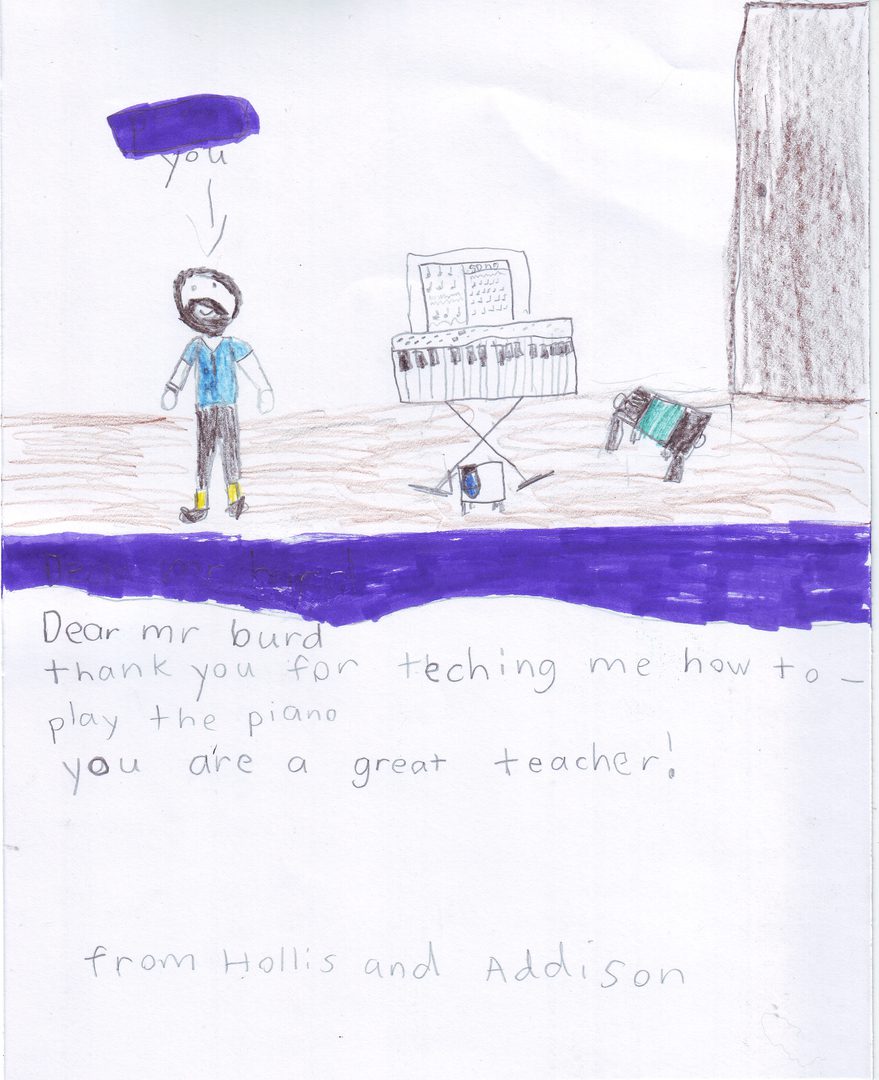 you
song
Dear mr burd
thank you for teching me how to -
play the piano
you are a great teacher!
from Hollis and Addison